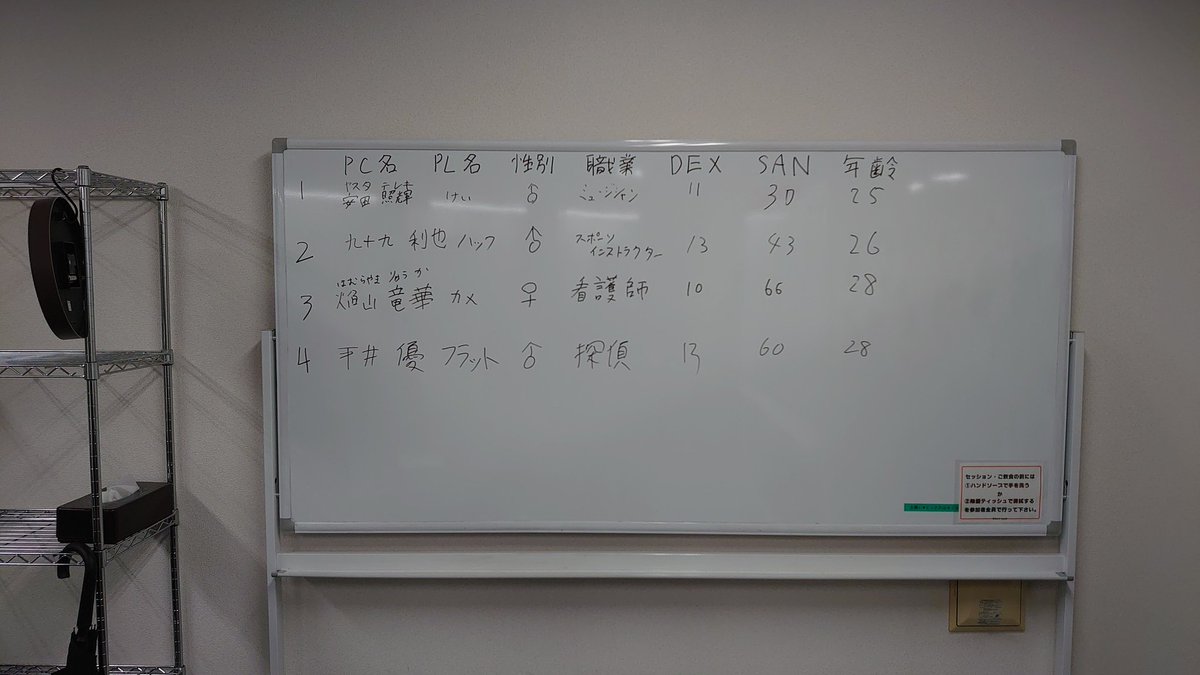 PC名 PL名 性別 職業 DEX SAN 年齢
1 安田 照輝 けい ♂ ミュージシャン 11 30 25
2 九十九 利也 ハック ♂ スポーツインストラクター 13 43 26
はむらやま りゅうか
3 焔山 竜華 カメ ♀ 看護師 10 66 28
4 平井 優 フラット ♂ 探偵 13 60 28
セッション・ご飲食の前には
①ハンドソープで手を洗う
か
②除菌ティッシュで清拭する
を参加者全員で行って下さい。